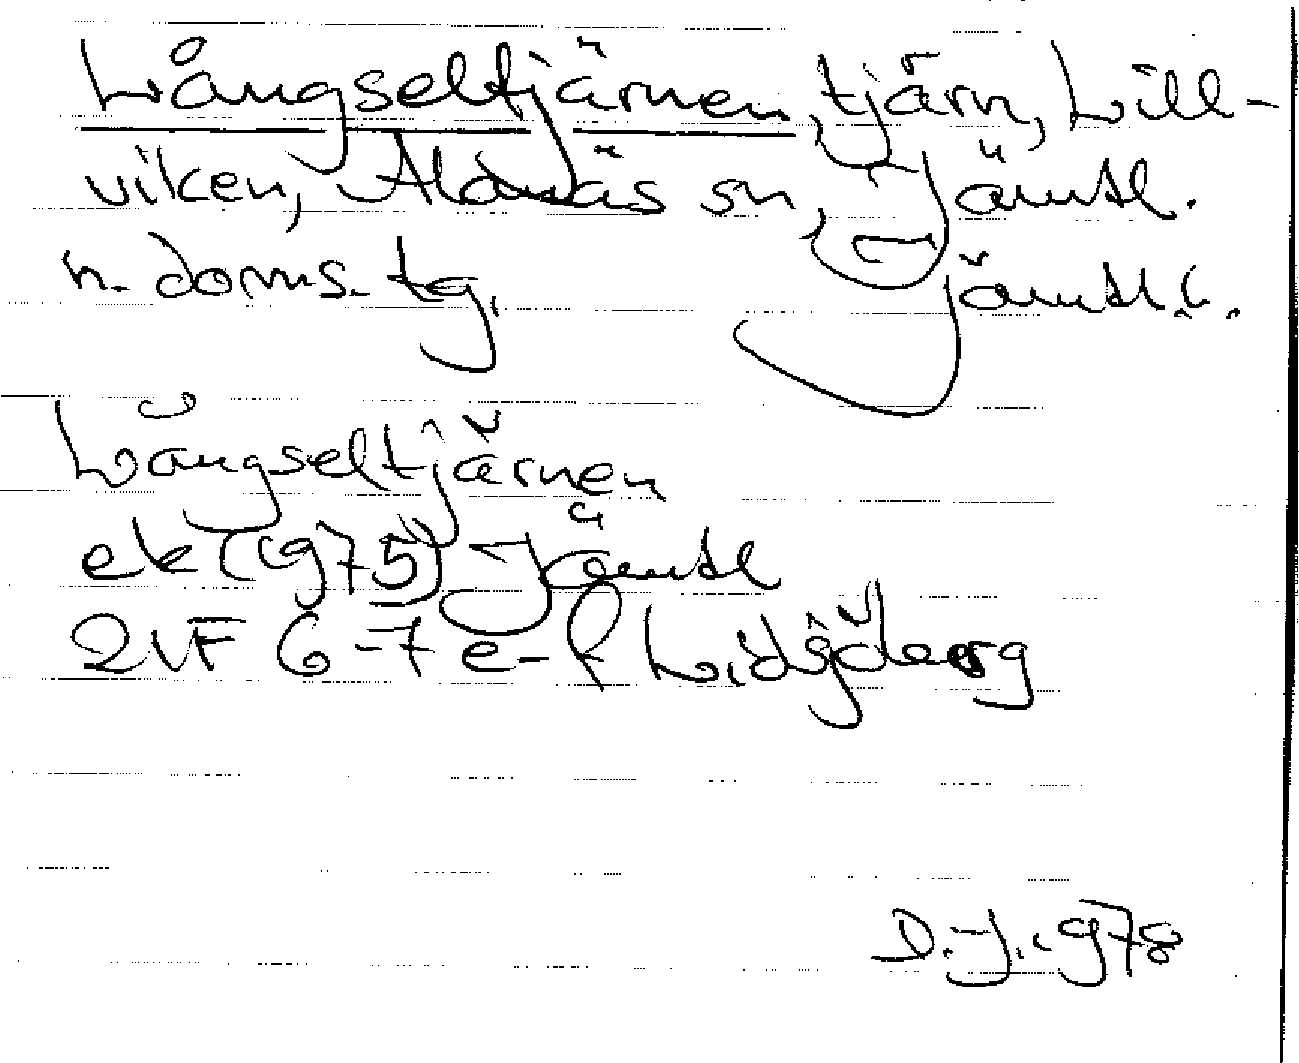 Långseltjärnen, tjärn, Lill-
viken, Alanäs sn, Jämtl.
n. doms. tg, Jämtl. l.
Långseltjärnen
ek (1975) Jämtl
2VF 6-7 e-f Lidsjöberg
D.J. 1978